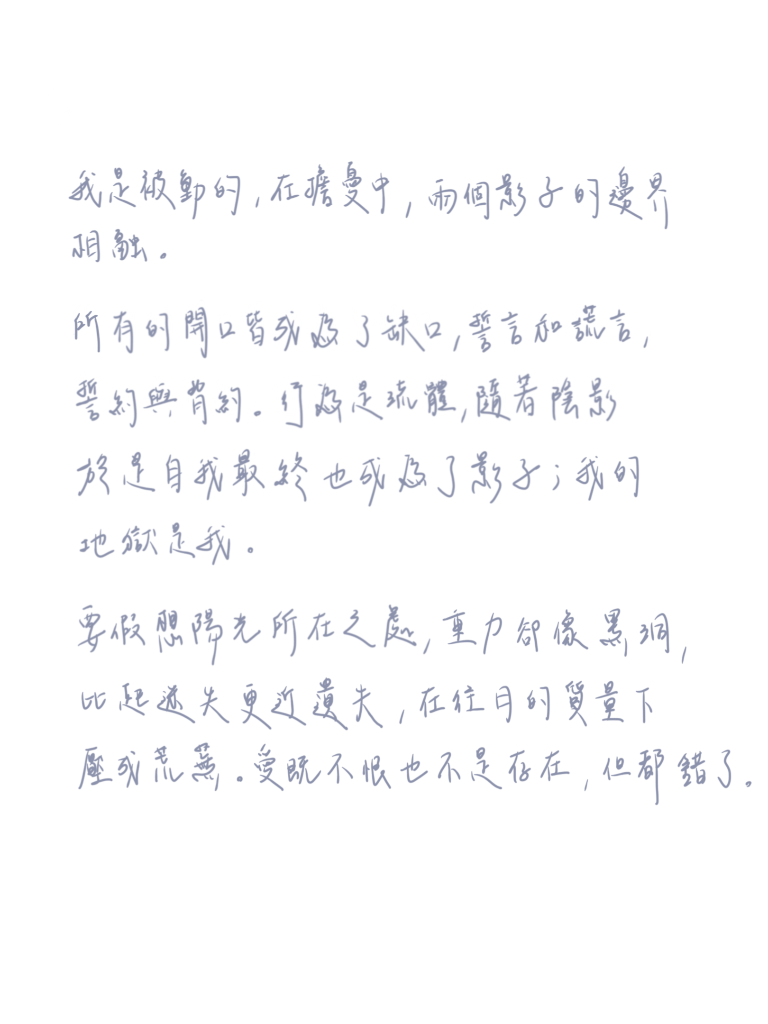 我是被動的,在擔憂中,兩個影子的邊界
相融。
所有的開口皆成為了缺口,誓言和謊言,
誓約與背約。行為是流體,隨著陰影
於是自我最終也成為了影子;我的
地獄是我。
要假想陽光所在之處,重力卻像黑洞,
比起迷失更近遺失,在往日的質量下
壓成荒蕪。愛既不恨也不是存在,但都錯了。